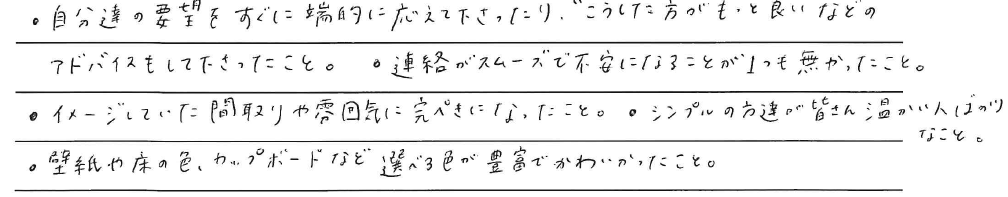 ・自分達の要望をすぐに端的に応えて下さったり、"こうした方がもっと良いなどの
アドバイスもして下さったこと。 ・連絡がスムーズで不安になることが1つも無かったこと。
・イメージしていた間取りや雰囲気に完ぺきになったこと。 ・シンプルの方達が皆さん温かい人ばかり
なこと。
・壁紙や床の色、カップボードなど選べる色が豊富でかわいかったこと。